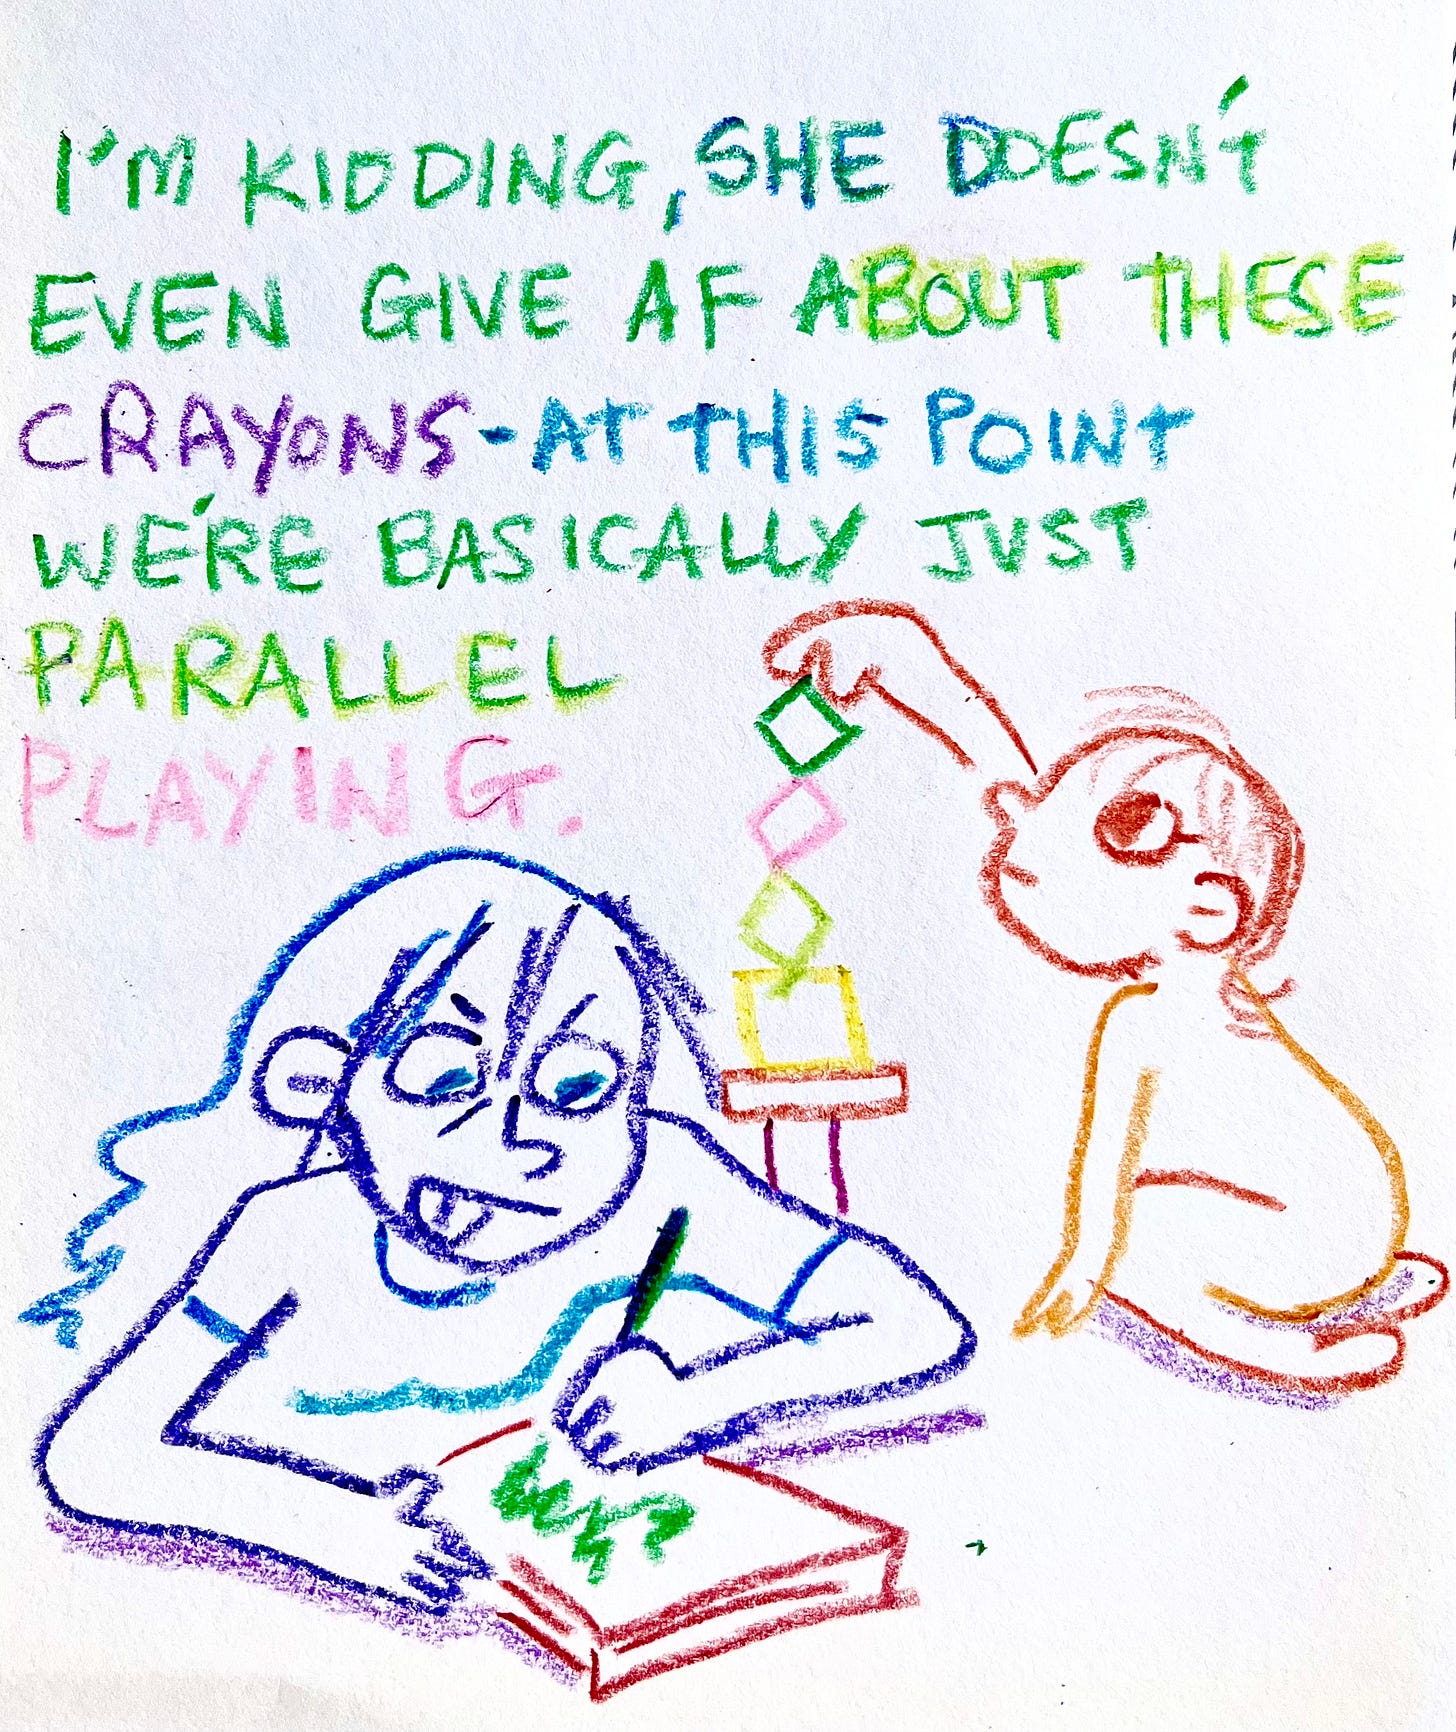 I'M KIDDING, SHE DOESN'T
EVEN GIVE AF ABOUT THESE
CRAYONS-AT THIS POINT
WE'RE BASICALLY JUST
PARALLEL
PLAYING.